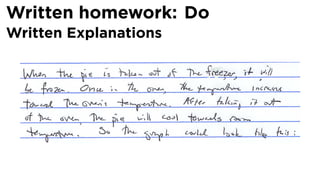 Written homework: Do
Written Explanations
When the pie is taken out of the freezer, it will
be frozen. Once in the oven, the temperature increase
toward the oven's temperature. After taking it out
of the oven, the pie will cool towards room
temperature. So the graph could look like this: